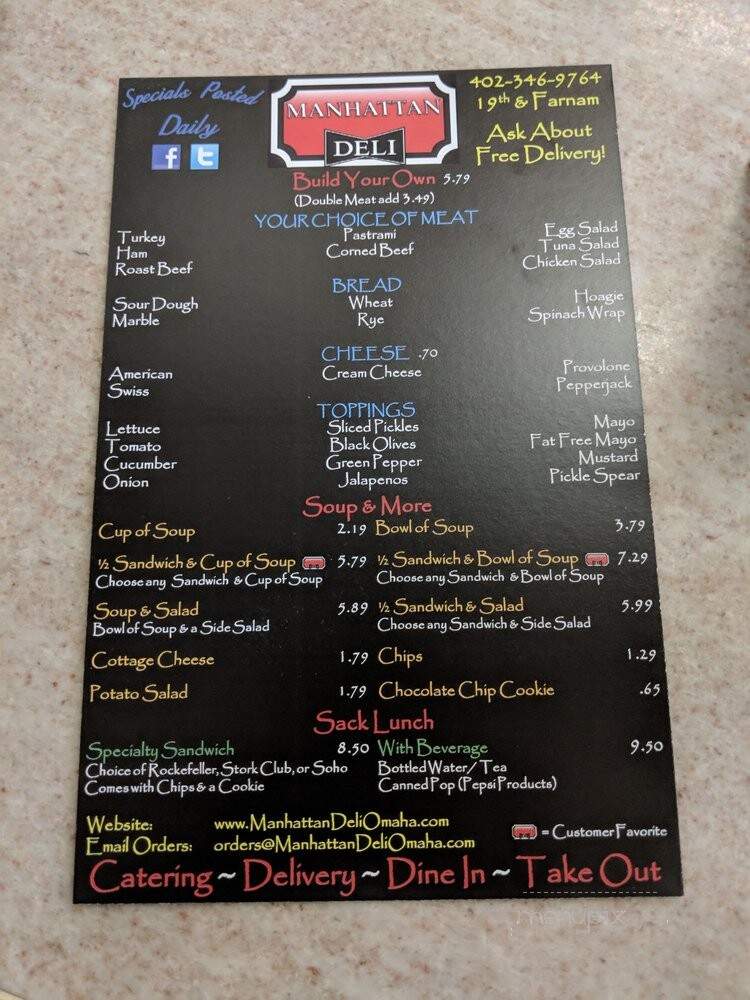 Specials Posted
Daily
MANHATTAN
DELI
402-346-9764
19th & Farnam
Ask About
Free Delivery!
Build Your Own 5.79
(Double Meat add 3.49)
YOUR CHOICE OF MEAT
Turkey Pastrami Egg Salad
Ham Corned Beef Tuna Salad
Roast Beef Chicken Salad
BREAD
Sour Dough Wheat Hoagie
Marble Rye Spinach Wrap
CHEESE .70
American Cream Cheese Provolone
Swiss Pepperjack
TOPPINGS
Lettuce Sliced Pickles Mayo
Tomato Black Olives Fat Free Mayo
Cucumber Green Pepper Mustard
Onion Jalapenos Pickle Spear
Soup & More
Cup of Soup 2.19 Bowl of Soup 3.79
½ Sandwich & Cup of Soup 5.79 ½ Sandwich & Bowl of Soup 7.29
Choose any Sandwich & Cup of Soup Choose any Sandwich & Bowl of Soup
Soup & Salad 5.89 ½ Sandwich & Salad 5.99
Bowl of Soup & a Side Salad Choose any Sandwich & Side Salad
Cottage Cheese 1.79 Chips 1.29
Potato Salad 1.79 Chocolate Chip Cookie .65
Sack Lunch
Specialty Sandwich 8.50 With Beverage 9.50
Choice of Rockefeller, Stork Club, or Soho Bottled Water / Tea
Comes with Chips & a Cookie Canned Pop (Pepsi Products)
Website: www.ManhattanDeliOmaha.com
Email Orders: orders@ManhattanDeliOmaha.com
= Customer Favorite
Catering ~ Delivery ~ Dine In ~ Take Out
menupix